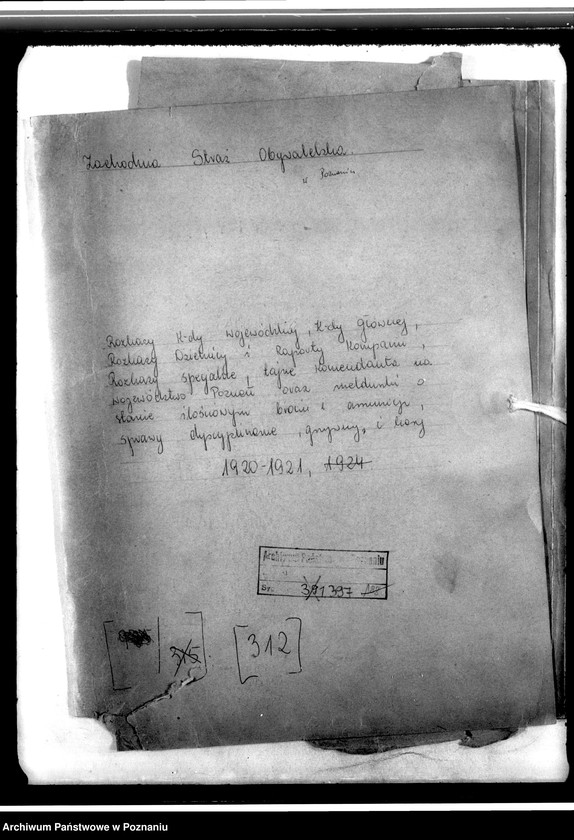 Zachodnia Straż Obywatelska.
w Poznaniu
Rozkazy K-dy wojewódzkiej, K-dy Głównej,
Rozkazy Dzielnicy i Raporty Kompanii,
Rozkazy specjalne, tajne Komendanta na
województwo Poznań oraz meldunki o
stanie ilościowym broni i amunicji,
sprawy dyscyplinarne, grzywny, i kary
1920-1921, 1924
Archiwum Państwowe w Poznaniu
Sy. 397
315
[312]
Archiwum Państwowe w Poznaniu